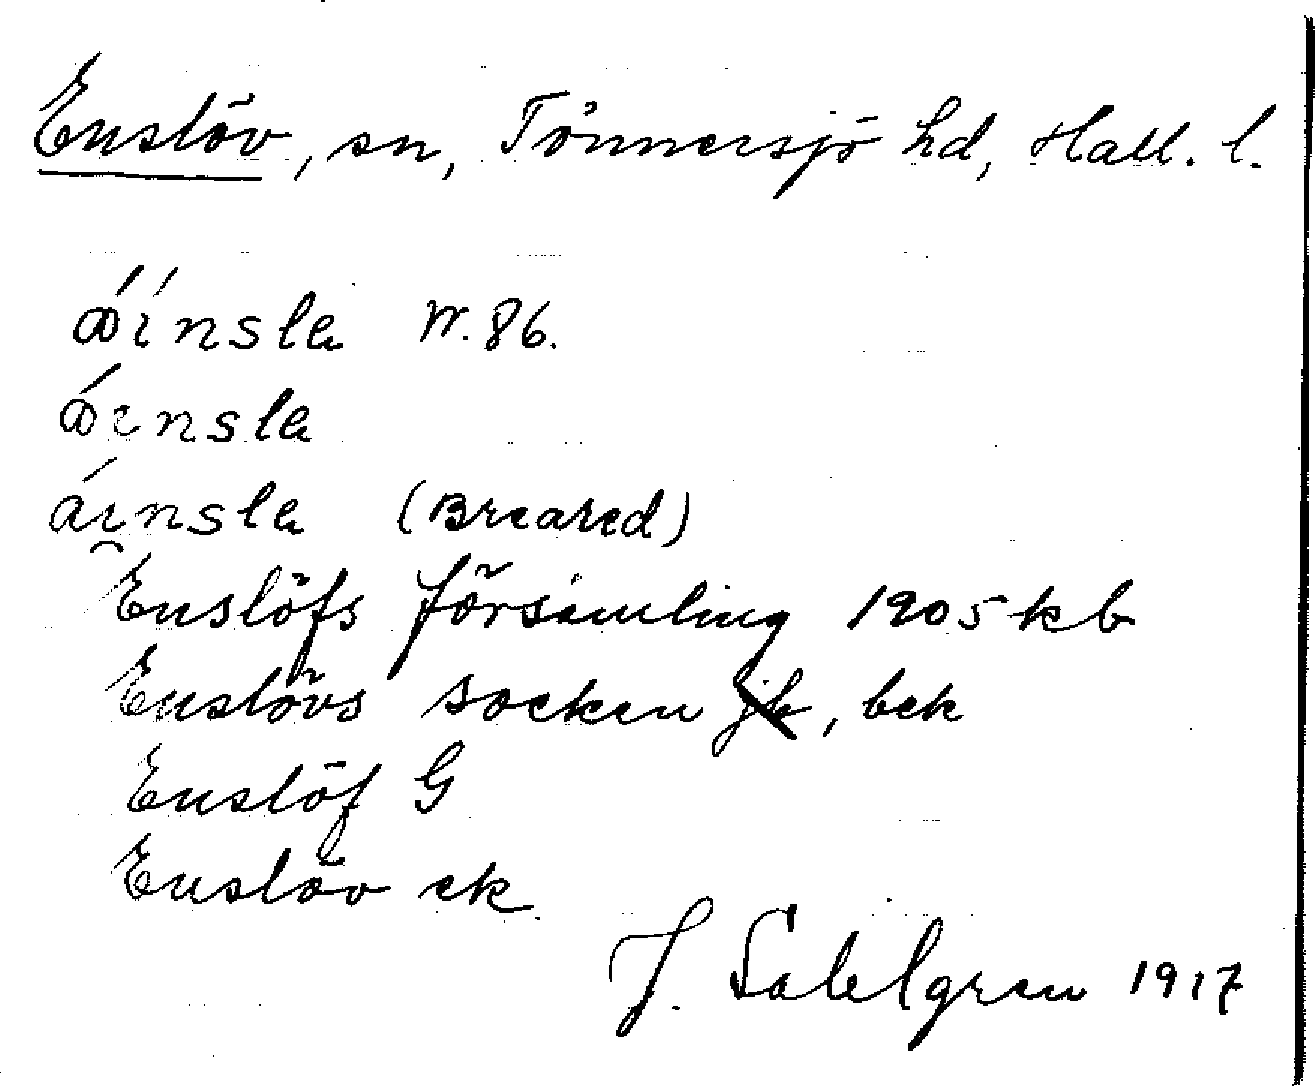 Enslöv, sn, Tönnersjö hd, Hall. l.
ǽínsla W. 86.
ǽınsla
áınsla (Breared)
Enslöfs församling 1905 kb
Enslövs socken jk, bek
Enslöf G
Enslöv ek
J. Sahlgren 1917